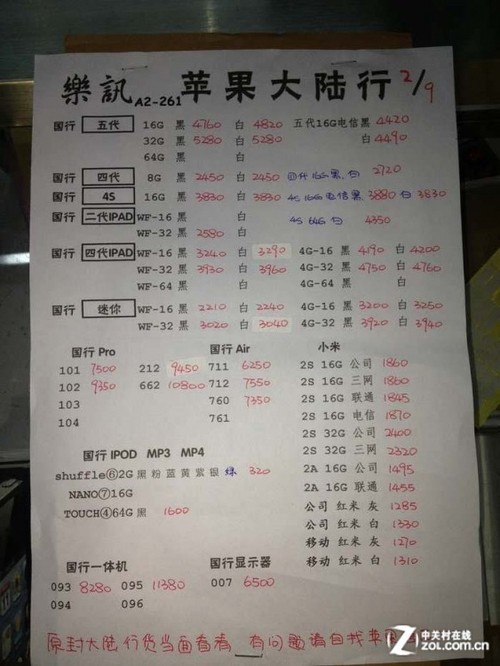 樂訊 A2-261 苹果大陆行 2/9
国行 五代 16G 黑 4760 白 4820 五代16G电信黑 4420
32G 黑 5280 白 5280 白 4490
64G 黑 白
国行 四代 8G 黑 2450 白 2450 四代16G黑.白 2720
国行 4S 16G 黑 3830 白 3830 4S 16G电信黑 3880 白 3830
国行 二代IPAD WF-16 黑 白 4S 64G 白 4350
WF-32 黑 2580 白
国行 四代IPAD WF-16 黑 3240 白 3290 4G-16 黑 4190 白 4200
WF-32 黑 3930 白 3960 4G-32 黑 4750 白 4760
WF-64 黑 白 4G-64 黑 白
国行 迷你 WF-16 黑 2210 白 2240 4G-16 黑 3200 白 3250
WF-32 黑 3020 白 3040 4G-32 黑 3920 白 3940
国行 Pro 国行 Air 小米
101 7500 212 9450 711 6250 2S 16G 公司 1860
102 9350 662 10800 712 7550 2S 16G 三网 1860
103 760 7350 2S 16G 联通 1845
104 761 2S 16G 电信 1870
2S 32G 公司 2400
国行 IPOD MP3 MP4 2S 32G 三网 2320
shuffle⑥2G 黑 粉 蓝 黄 紫 银 320 2A 16G 公司 1495
NANO⑦16G 2A 16G 联通 1455
TOUCH④64G 黑 1600 公司 红米 灰 1285
公司 红米 白 1330
移动 红米 灰 1270
国行一体机 国行显示器 移动 红米 白 1310
093 8280 095 11380 007 6500
094 096
原封大陆行货当面查看 有问题请自找苹
中关村在线
zol.com.cn